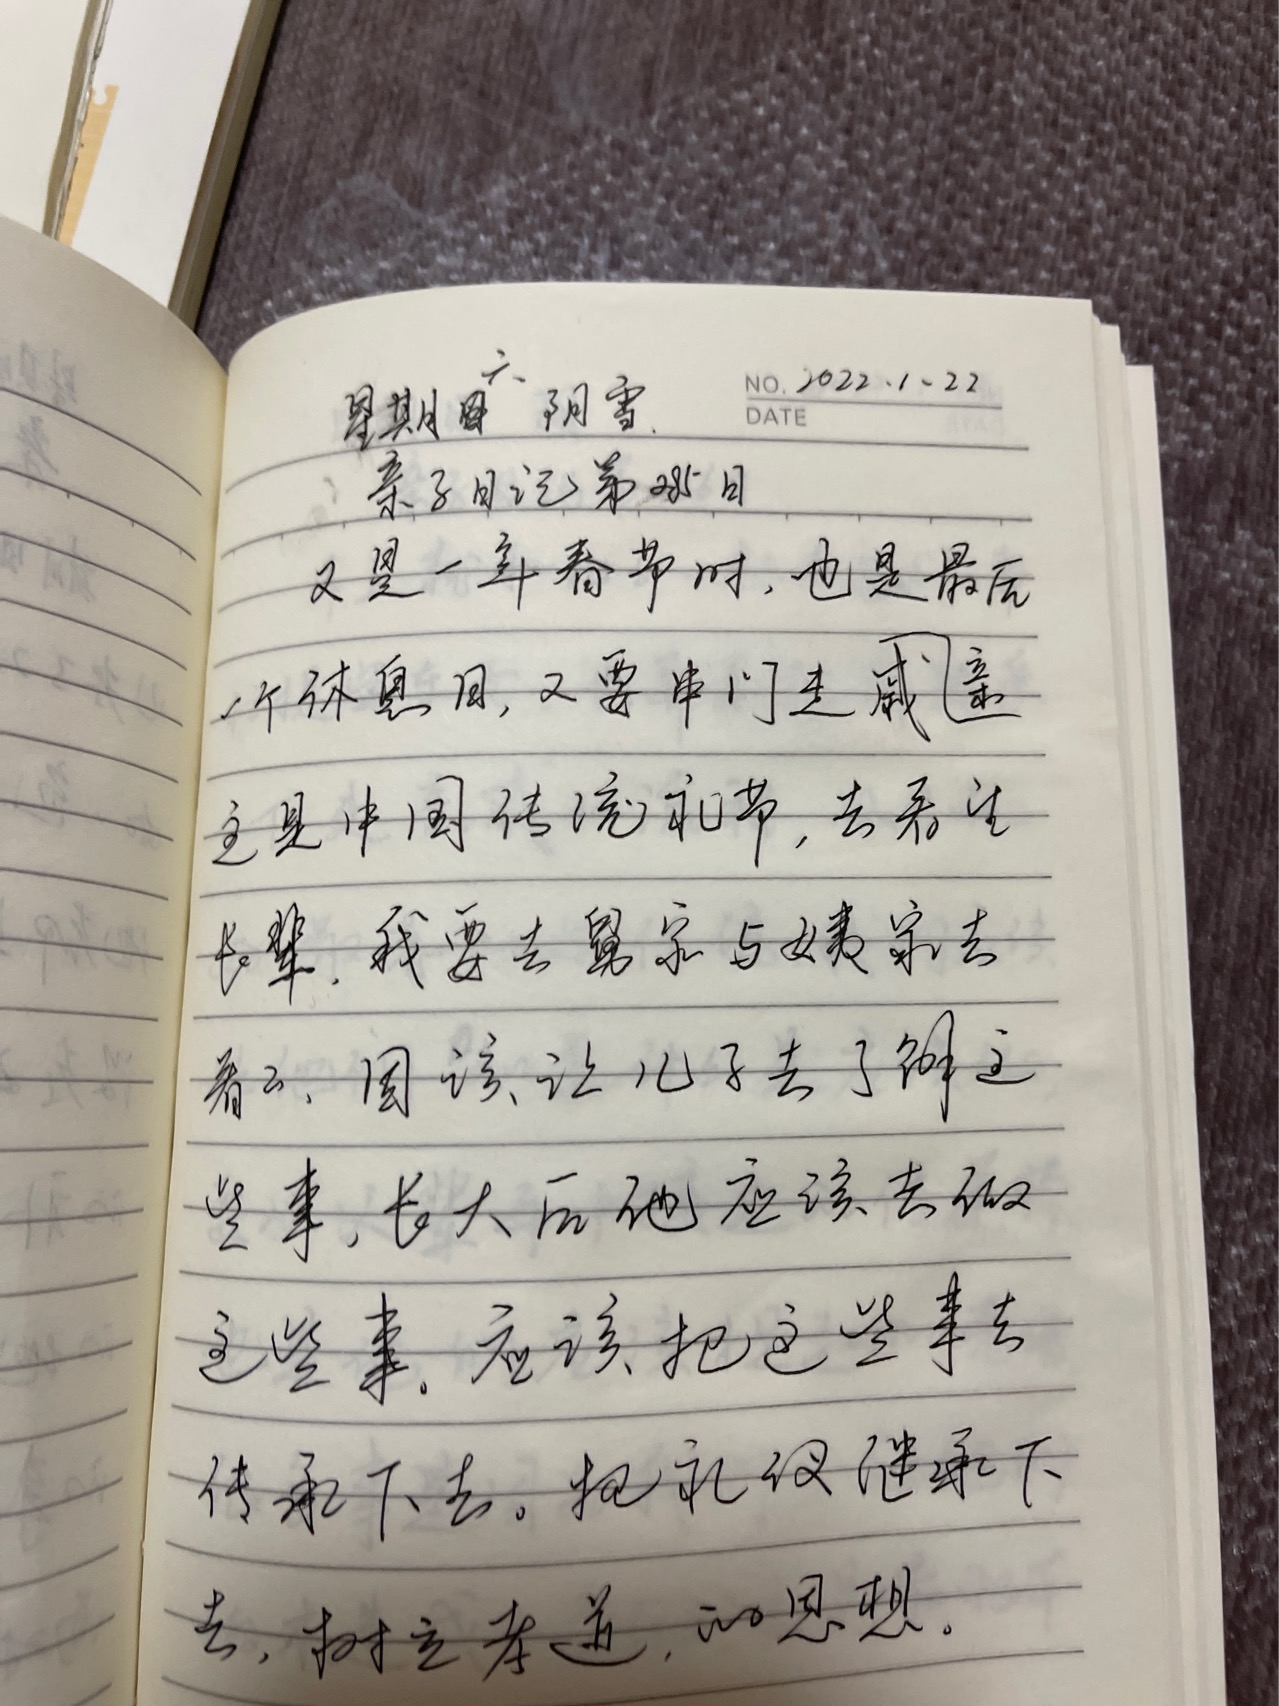 NO. 2022.1-22
星期六 阴雪.
DATE
亲子日记第285日
又是一年春节时,也是最后
一个休息日,又要串门走戚亲
这是中国传统礼节,去看望
长辈.我要去舅家与姨家去
看看,因该让儿子去了解这
些事,长大后他应该去做
这些事。应该把这些事去
传承下去。把礼仪继承下
去,树立孝道,的思想。